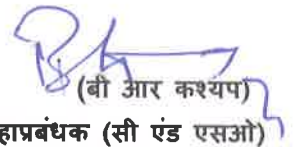 (बी आर कश्यप)
हाप्रबंधक (सी एंड एसओ)